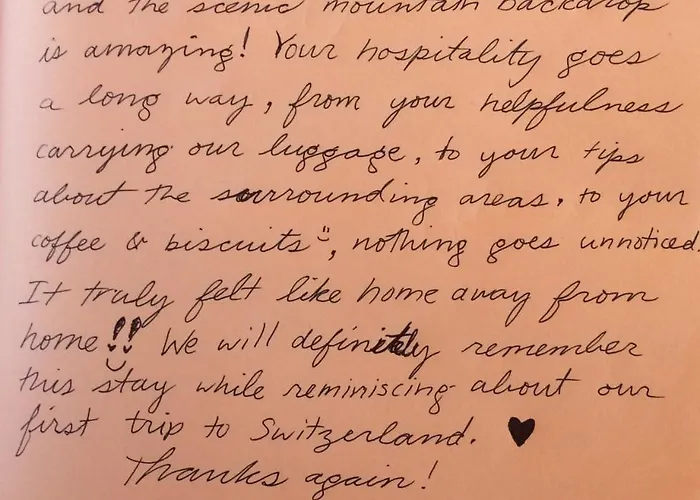 and the scenic mountain backdrop
is amazing! Your hospitality goes
a long way, from your helpfulness
carrying our luggage, to your tips
about the surrounding areas, to your
coffee & biscuits, nothing goes unnoticed.
It truly felt like home away from
home!! We will definitely remember
this stay while reminiscing about our
first trip to Switzerland. ♥
Thanks again!